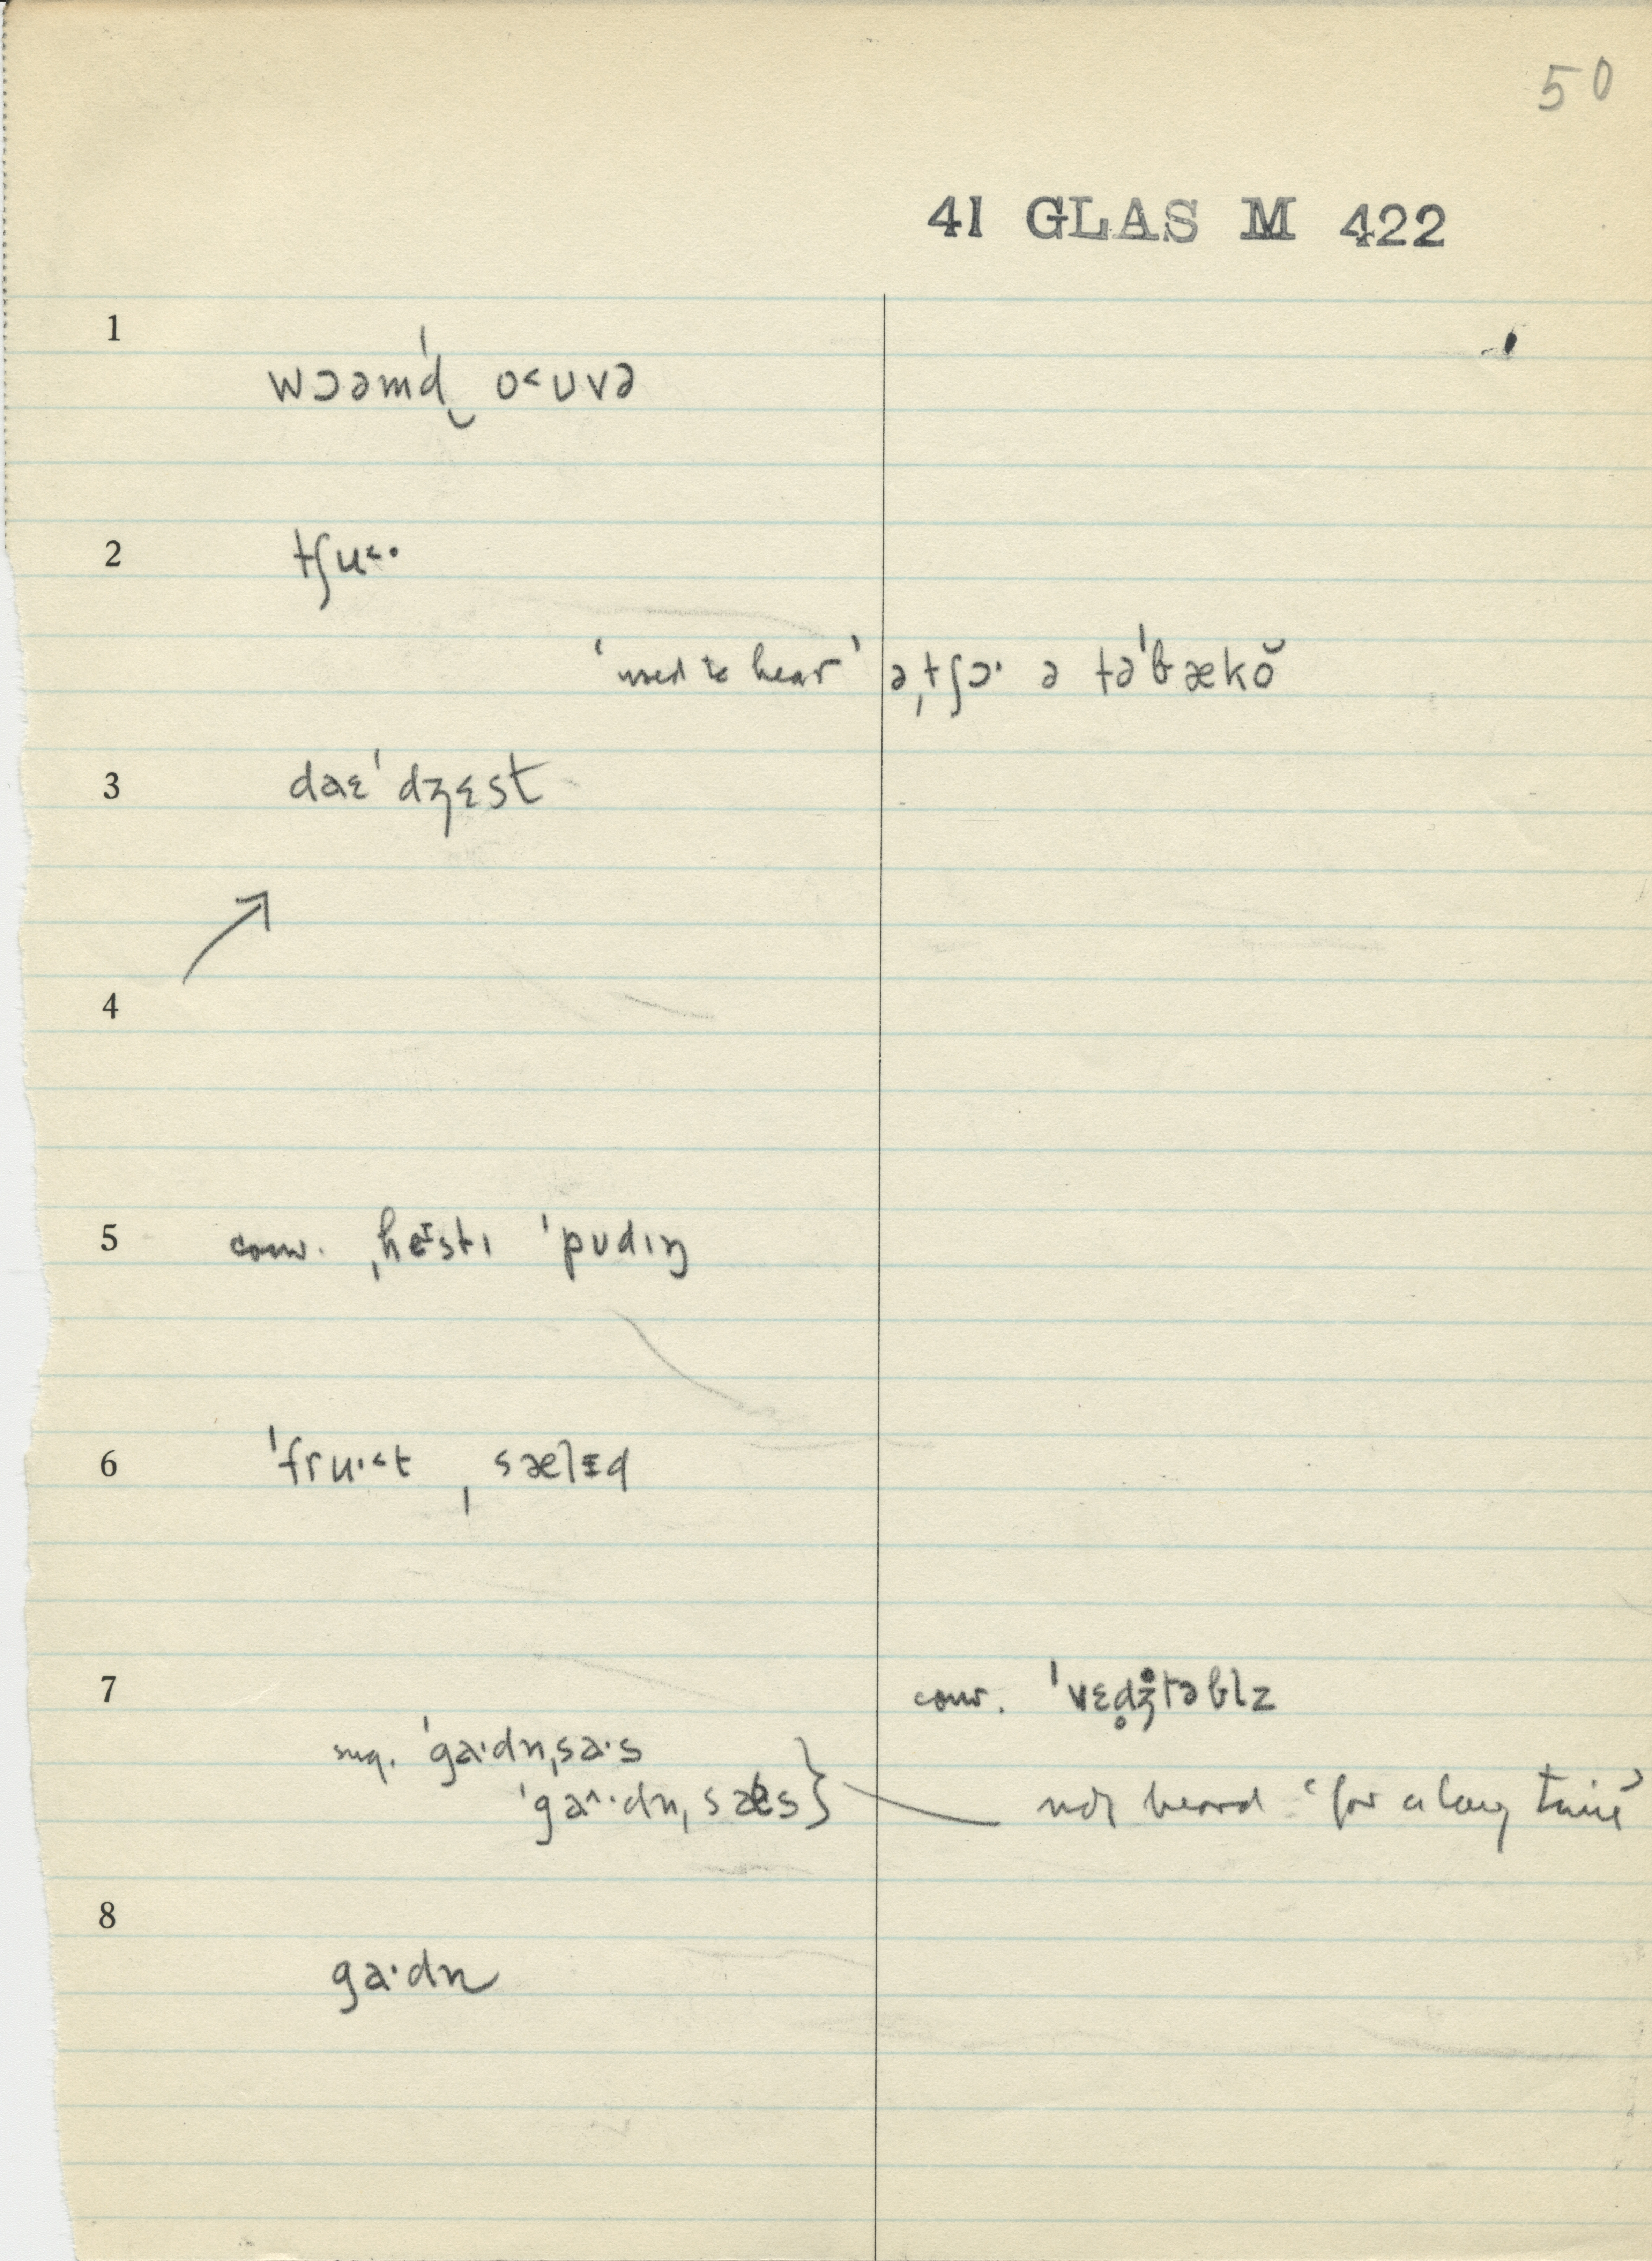 50
41 GLAS M 422
1
wɔəmd‿ˈ o˂ʊvə
2
tʃu˂·
‘used to hear’ ə,tʃɔ· ə təˈbækŏ
3
daɛˈdʒɛst
4
5
conv. ˌheɪstɪ ˈpʊdɪŋ
6
ˈfru·˂t ˌsælɪd
7
conv. ˈvɛdʒ̊təblz
sug. ˈga·dn̩ˌsa·s
ˈga^·dn̩ˌsæs }
not heard ‘for a long time’
8
ga·dn̩